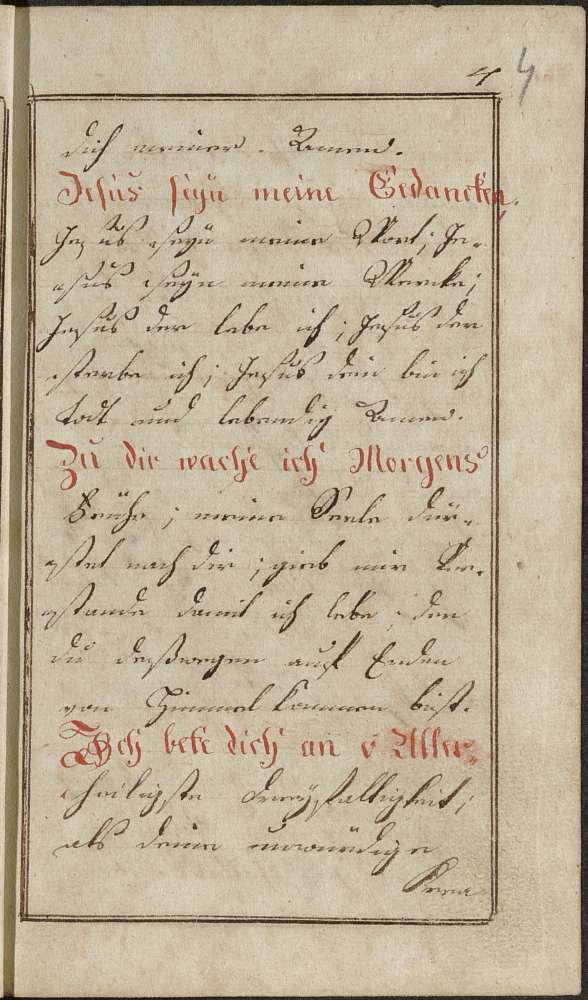 4 4
dich meiner. Amen.
Jesus seÿn meine Gedancken,
Jesus seÿn meine Wort; Je-
sus seÿn meine Wercke;
Jesus der lebe ich; Jesus der
sterbe ich; Jesus dein bin ich
todt und lebendig Amen.
Zu dir wache ich Morgens
Frühe; meine Seele dür-
stet nach dir; gieb mir Ver-
stande damit ich lebe; der
du desßwegen auf Erden
von Himmel kommen bist.
Ich bete dich an ö Aller-
heiligste Dreÿfaltigkeit;
als deine unwürdige
Krea